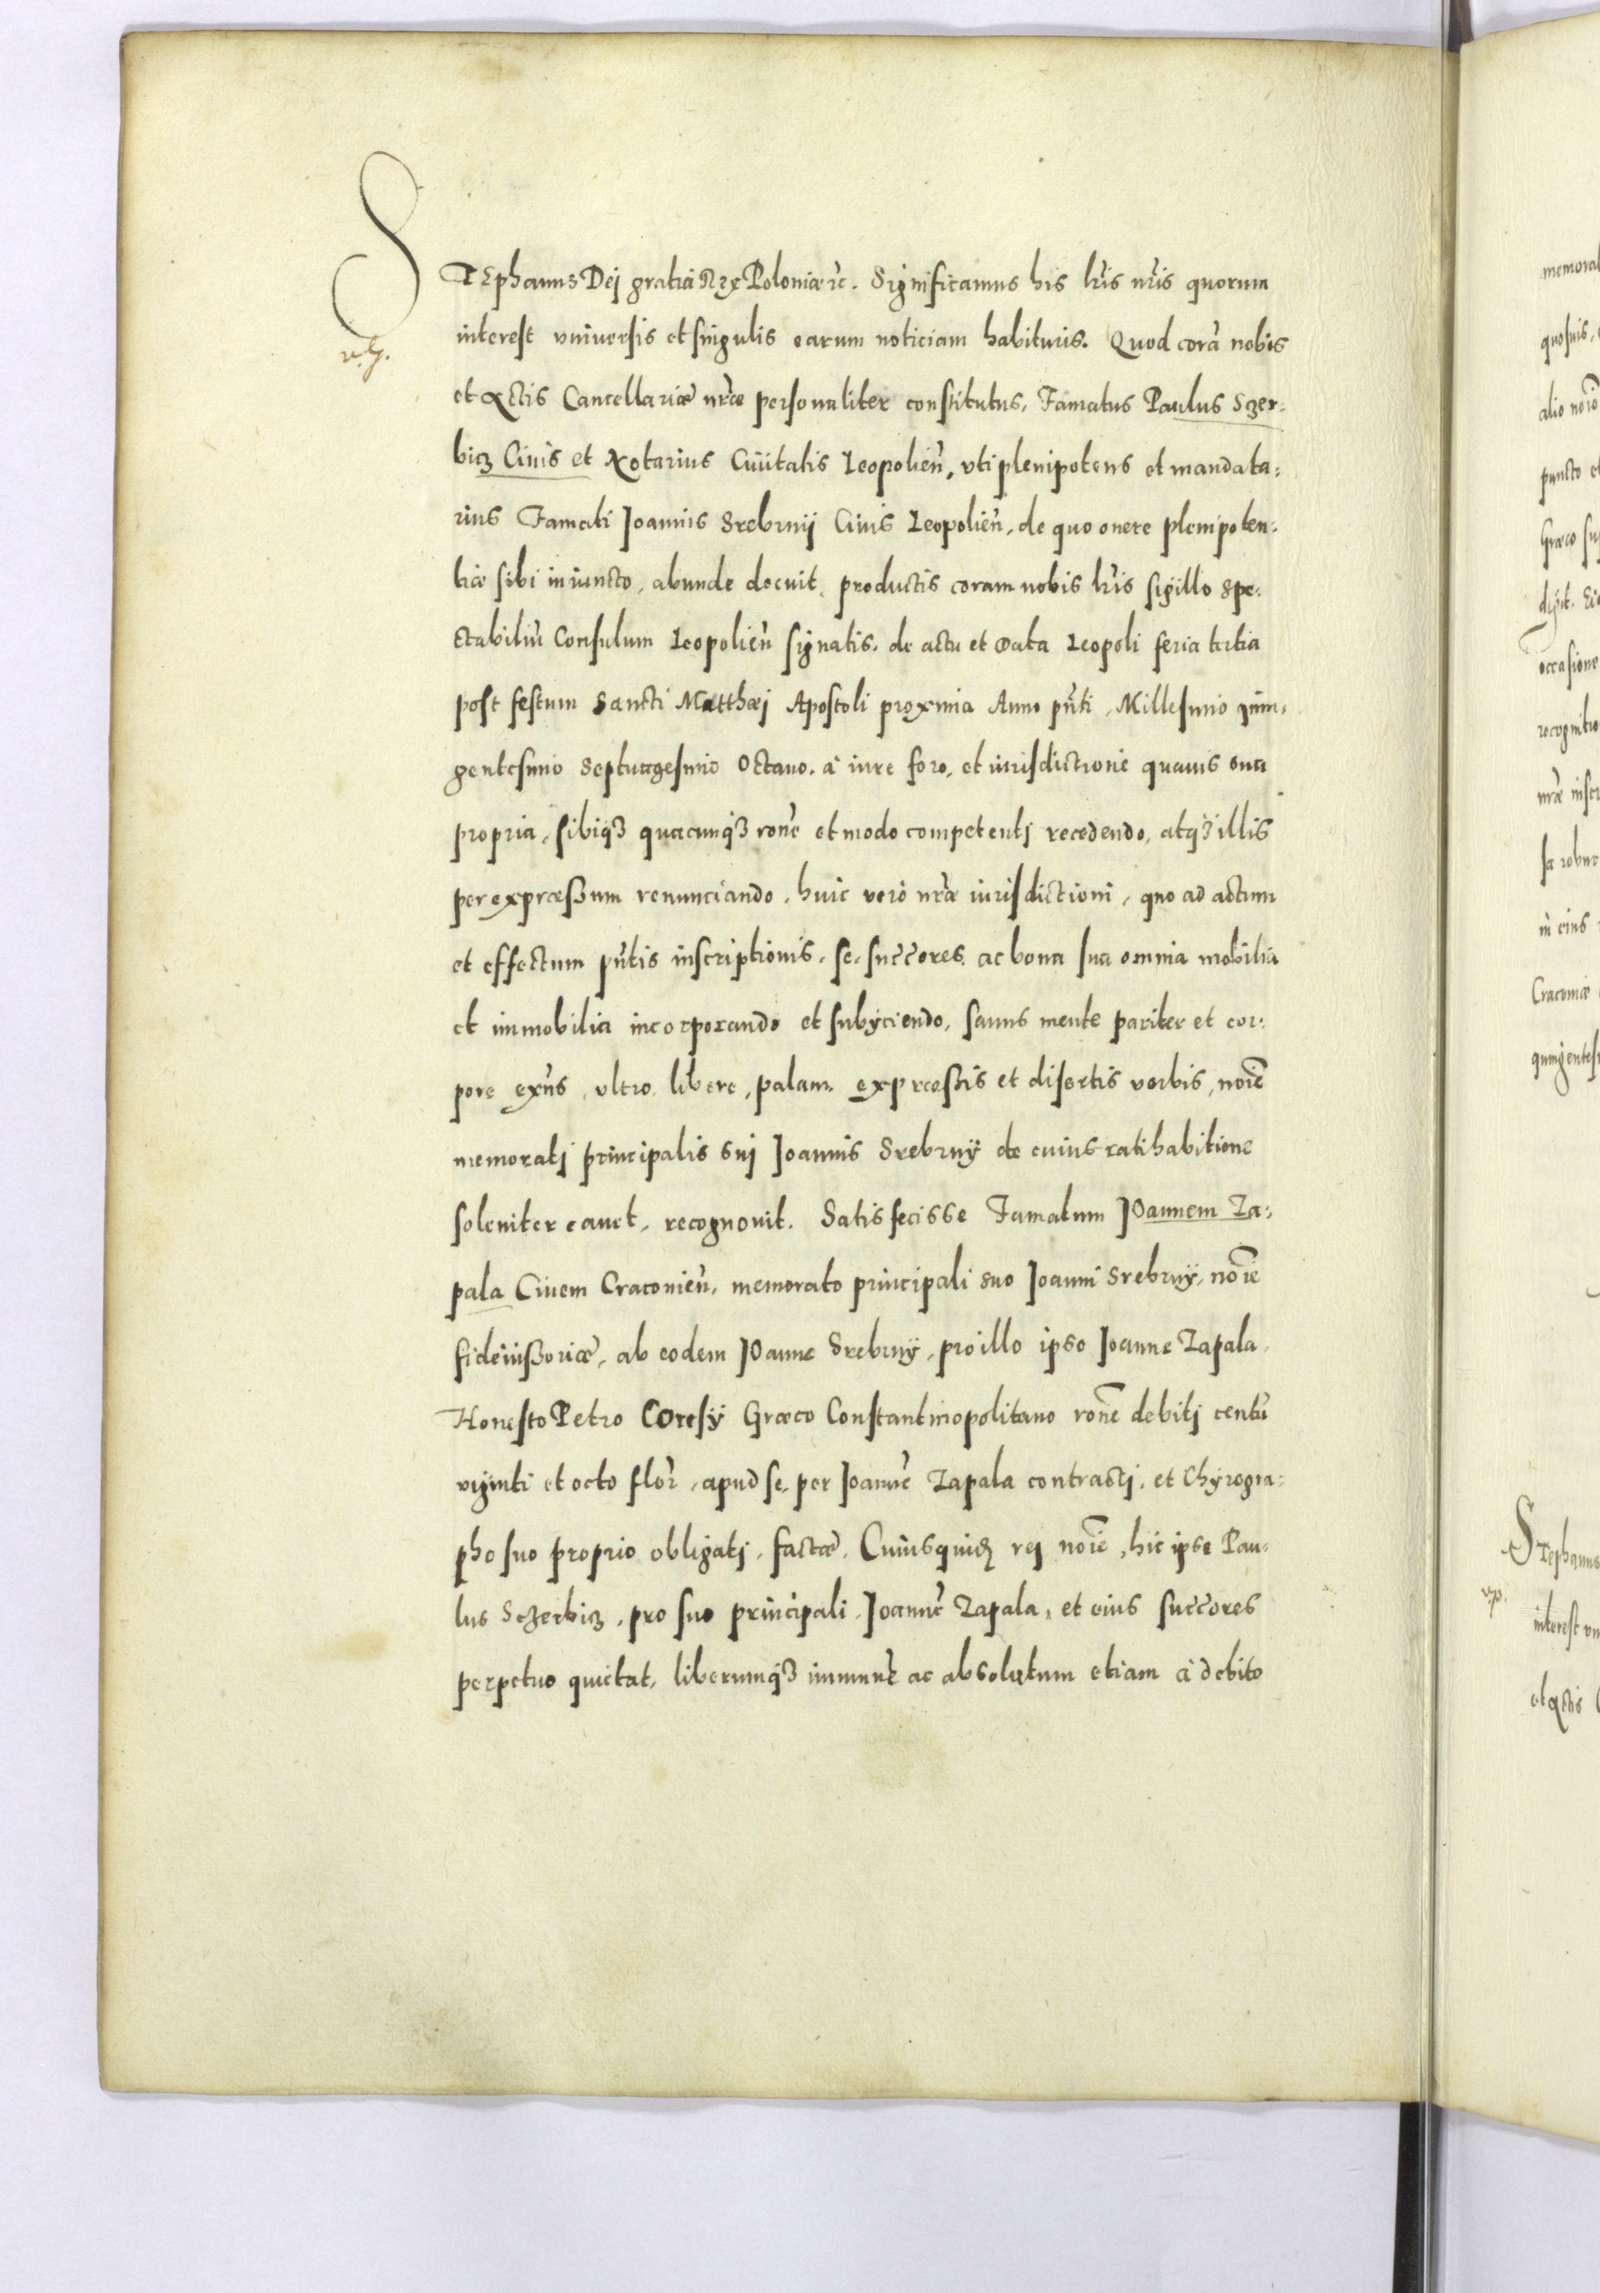 STEphanus Dej gratia Rex Poloniæ ec. Significamus his lris nris quorum
interest vniuersis et singulis earum noticiam habituris. Quod corã nobis
et Actis Cancellariæ nræ personaliter constitutus, Famatus Paulus Sczer-
bicz Ciuis et Notarius Ciuitatis Leopolien̄, vti plenipotens et mandata-
rius Famati Joannis Srebrnij Ciuis Leopolien̄, de quo onere plenipoten-
tiæ sibi iniuncto, abunde docuit, productis coram nobis lris sigillo Spe-
ctabiliū Consulum Leopolien̄ signatis, de actu et Data Leopoli feria tertia
post festum Sancti Matthæj Apostoli proxima Anno pñti, Millesimo quin-
gentesimo Septuagesimo Octauo. à iure foro, et iurisdictione quauis sua
propria, sibiqȝ quacunqȝ rone et modo competentj recedendo, atqȝ illis
per expræssum renunciando, huic verò nræ iurisdictioni, quo ad actum
et effectum pñtis inscriptionis, se, succores ac bona sua omnia mobilia
et immobilia incorporando et subÿciendo, sanus mente pariter et cor-
pore exñs, vltro, libere, palam, expræssis et disertis verbis, noie
memoratj principalis suj Joannis Srebrnÿ de cuius ratihabitione
soleniter cauet, recognouit. Satisfecisse Famatum JOannem Za-
pala Ciuem Cracouien̄, memorato principali suo Joanni Srebrnÿ, noie
fideiussoriæ, ab eodem JOanne Srebrnÿ, pro illo ipso Joanne Zapala,
Honesto Petro Coresÿ Græco Constantinopolitano rone debitj centū
viginti et octo flor̄, apud se, per Joannē Zapala contractj, et Chÿrogra-
pho suo proprio obligatj, factæ. Cuiusquidē rej noie, hic ipse Pau-
lus Sczerbicz, pro suo principali, Joannē Zapala, et eius succores
perpetuo quietat, liberumqȝ immunē ac absolutum etiam à debito